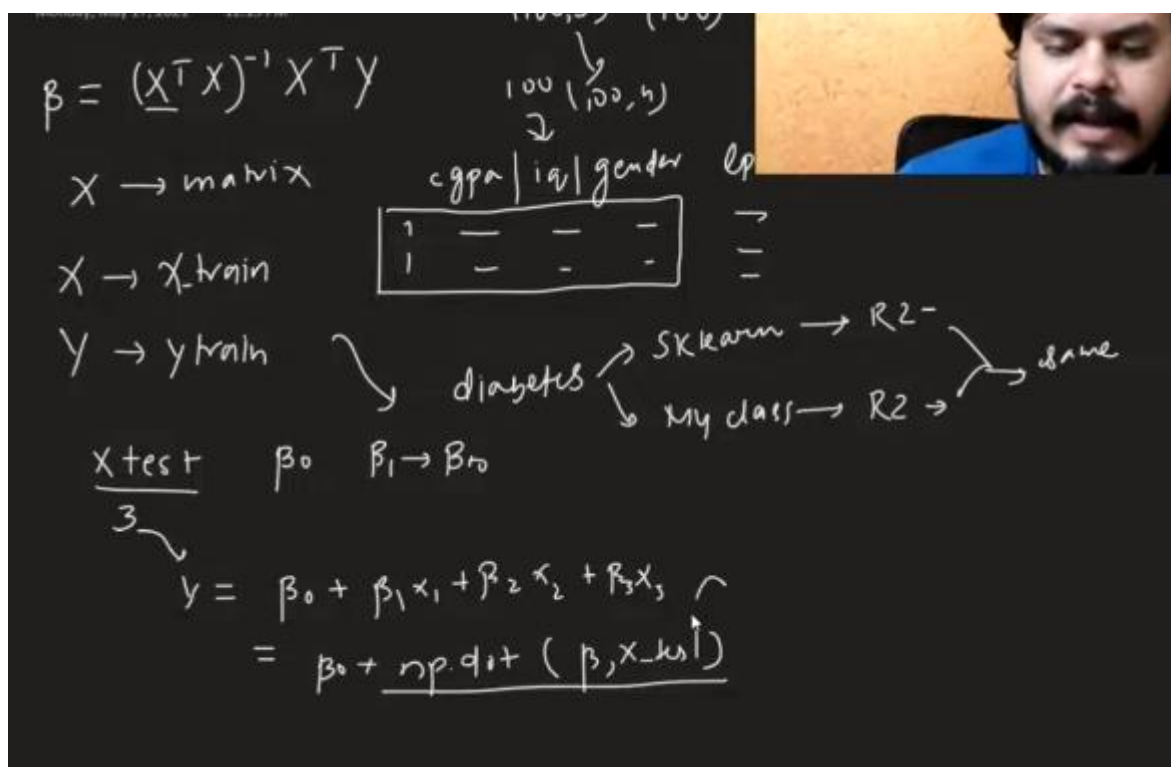 β = (XᵀX)⁻¹ XᵀY
100 (100, n)
X → matrix
cgpa | iq | gender lp
1 — — — —
1 — - - —
X → X_train
Y → ytrain
diabetes
SKlearn → R2 -
My class → R2 →
same
Xtest β0 β1 →
3
Y = β0 + β1x1 + β2x2 + β3x3
= β0 + np.dot (β, X_test)